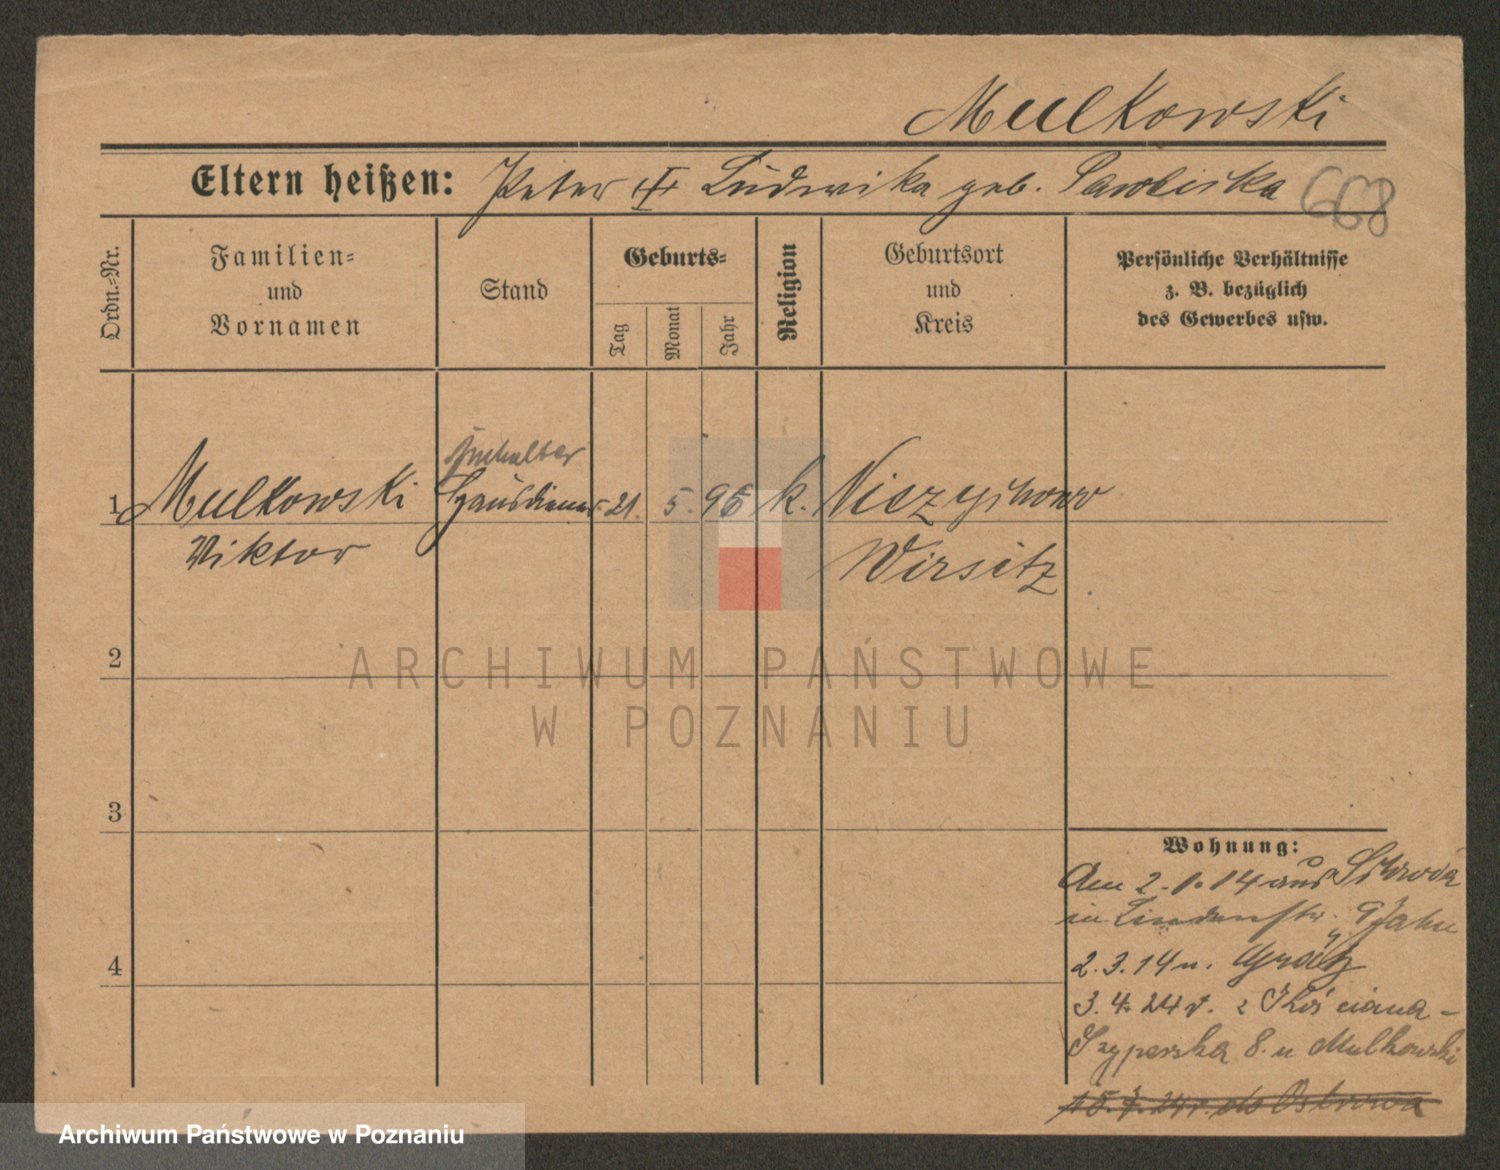 Mulkowski
Eltern heißen: Peter Ludwika geb.
668
Ordn.-Nr.
Familien-
und
Vornamen
Stand
Geburts-
Tag
Monat
Jahr
Religion
Geburtsort
und
Kreis
Persönliche Verhältnisse
z. B. bezüglich
des Gewerbes usw.
Buchalter
1 Mulkowski Hausdiener 21. 5. 96 k. Niezychowo
Viktor Wirsitz
2
3
4
ARCHIWUM PAŃSTWOWE
W POZNANIU
Wohnung:
Am 2.1.14 aus Schroda
in Lindenstr. 9 Jahn
2.3.14 n. Grätz
3.4.24 r. z Kościana -
Szyperska 8. u Mulkowski
15. 7. 24 r. do Ostrowa
Archiwum Państwowe w Poznaniu